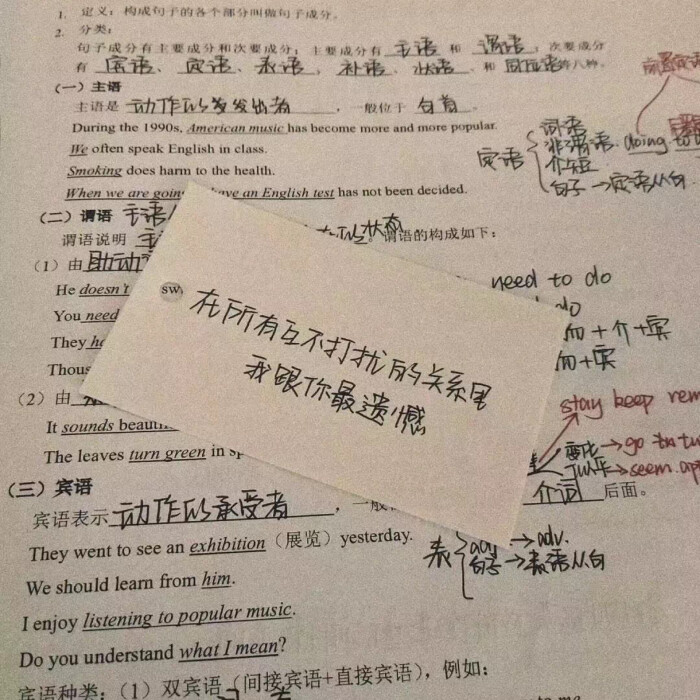 1. 定义：构成句子的各个部分叫做句子成分。
2. 分类：
句子成分有主要成分和次要成分；主要成分有 主语 和 谓语；次要成分
有 宾语、定语、表语、补语、状语、和 同位语等八种。
（一）主语
主语是 动作的发出者，一般位于 句首。
During the 1990s, American music has become more and more popular.
We often speak English in class.
Smoking does harm to the health.
When we are going have an English test has not been decided.
定语
词语
非谓语. doing. to
介短
句子→定语从句
（二）谓语
谓语说明
状态
谓语的构成如下：
（1）由 助动
He doesn't
You need
They
Thous
（2）由
It sounds
The leaves turn green in
need to do
do
+介+宾
+宾
stay keep
变化→go
→seem
介词 后面。
SW
在所有互不打扰的关系里
我跟你最遗憾
（三）宾语
宾语表示 动作的承受者，一般
They went to see an exhibition（展览）yesterday.
We should learn from him.
I enjoy listening to popular music.
Do you understand what I mean?
表
adj→adv.
句子→表语从句
宾语种类：（1）双宾语（间接宾语+直接宾语），例如：
to me